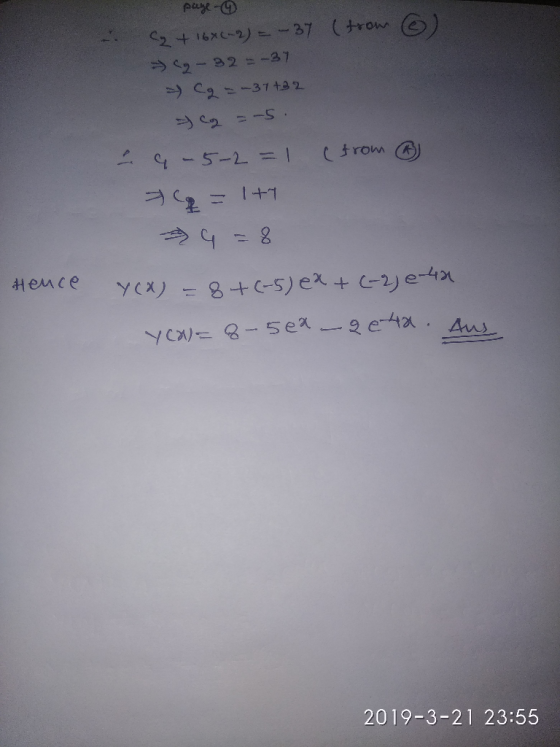 page-④
∴ C₂ + 16×(-2) = -37 (from Ⓒ)
⇒ C₂ - 32 = -37
⇒ C₂ = -37+32
⇒ C₂ = -5.
∴ C₁ - 5 - 2 = 1 (from Ⓐ)
⇒ C₁ = 1+7
⇒ C₁ = 8
Hence y(x) = 8 + (-5) eˣ + (-2) e⁻⁴ˣ
y(x) = 8 - 5eˣ - 2e⁻⁴ˣ. Ans
2019-3-21 23:55